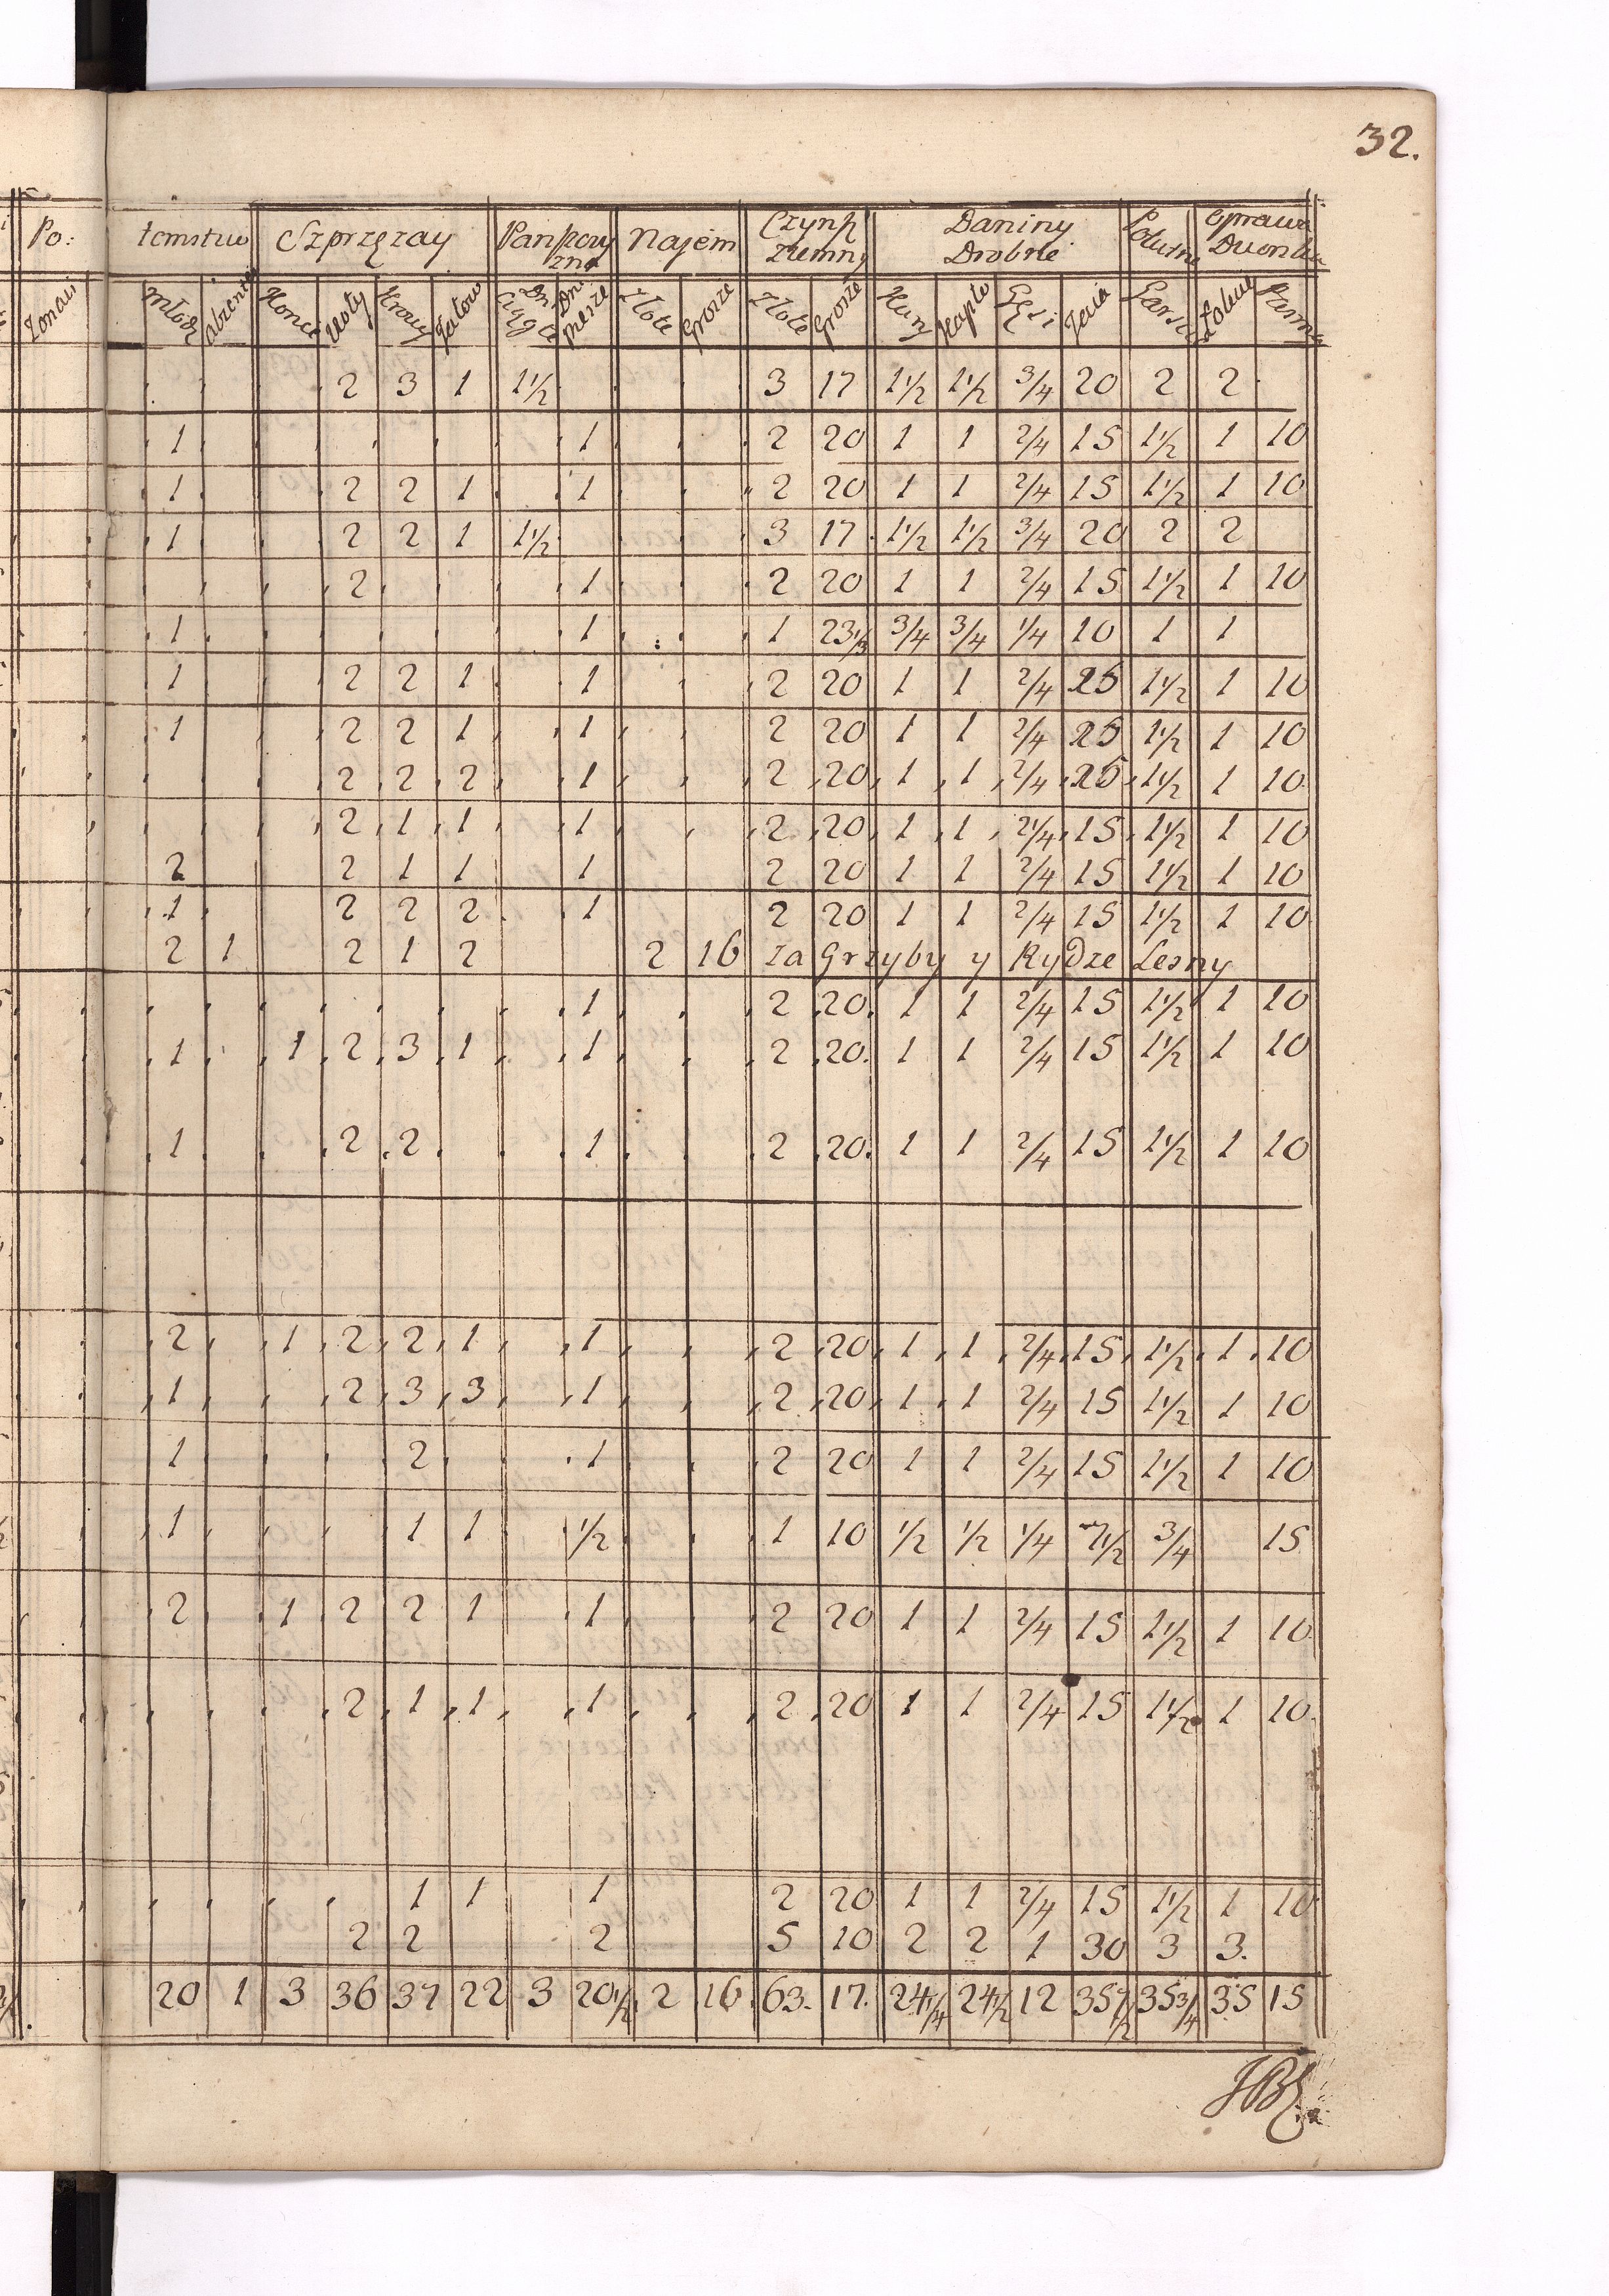 32.
Po: tomstwo Szprzęzay Panszczyzna Najem Czynsz Ziemny Daniny Drobne
Zonaci młodz Konei Woły Krowy Jałow Dni Ciągłe Dni piesze Złote Grosze Złote Grosze Kury Kapło Gęsi Jaia
2 3 1 1½ 3 17 1½ 1½ ¾ 20 2 2
1 1 2 20 1 1 2/4 15 1½ 1 10
1 2 2 1 1 2 20 1 1 2/4 15 1½ 1 10
1 2 2 1 1½ 3 17 1½ 1½ ¾ 20 2 2
2 1 2 20 1 1 2/4 15 1½ 1 10
1 1 1 23⅓ ¾ ¾ ¼ 10 1 1
1 2 2 1 1 2 20 1 1 2/4 25 1½ 1 10
1 2 2 1 1 2 20 1 1 2/4 25 1½ 1 10
2 2 2 1 2 20 1 1 2/4 25 1½ 1 10
2 1 1 1 2 20 1 1 2/4 15 1½ 1 10
2 2 1 1 1 2 20 1 1 2/4 15 1½ 1 10
1 2 2 2 1 2 20 1 1 2/4 15 1½ 1 10
2 1 2 1 2 2 16 Za Grzyby y Rydze Lesny
1 2 20 1 1 2/4 15 1½ 1 10
1 1 2 3 1 1 2 20 1 1 2/4 15 1½ 1 10
1 2 2 1 2 20 1 1 2/4 15 1½ 1 10
2 1 2 2 1 1 2 20 1 1 2/4 15 1½ 1 10
1 2 3 3 1 2 20 1 1 2/4 15 1½ 1 10
1 2 1 2 20 1 1 2/4 15 1½ 1 10
1 1 1 ½ 1 10 ½ ½ ¼ 7½ ¾ 15
2 1 2 2 1 1 2 20 1 1 2/4 15 1½ 1 10
2 1 1 1 2 20 1 1 2/4 15 1½ 1 10
1 1 1 2 20 1 1 2/4 15 1½ 1 10
2 2 2 5 10 2 2 1 30 3 3.
20 1 3 36 37 22 3 20½ 2 16 63. 17. 24¼ 24½ 12 357½ 35¾ 35 15